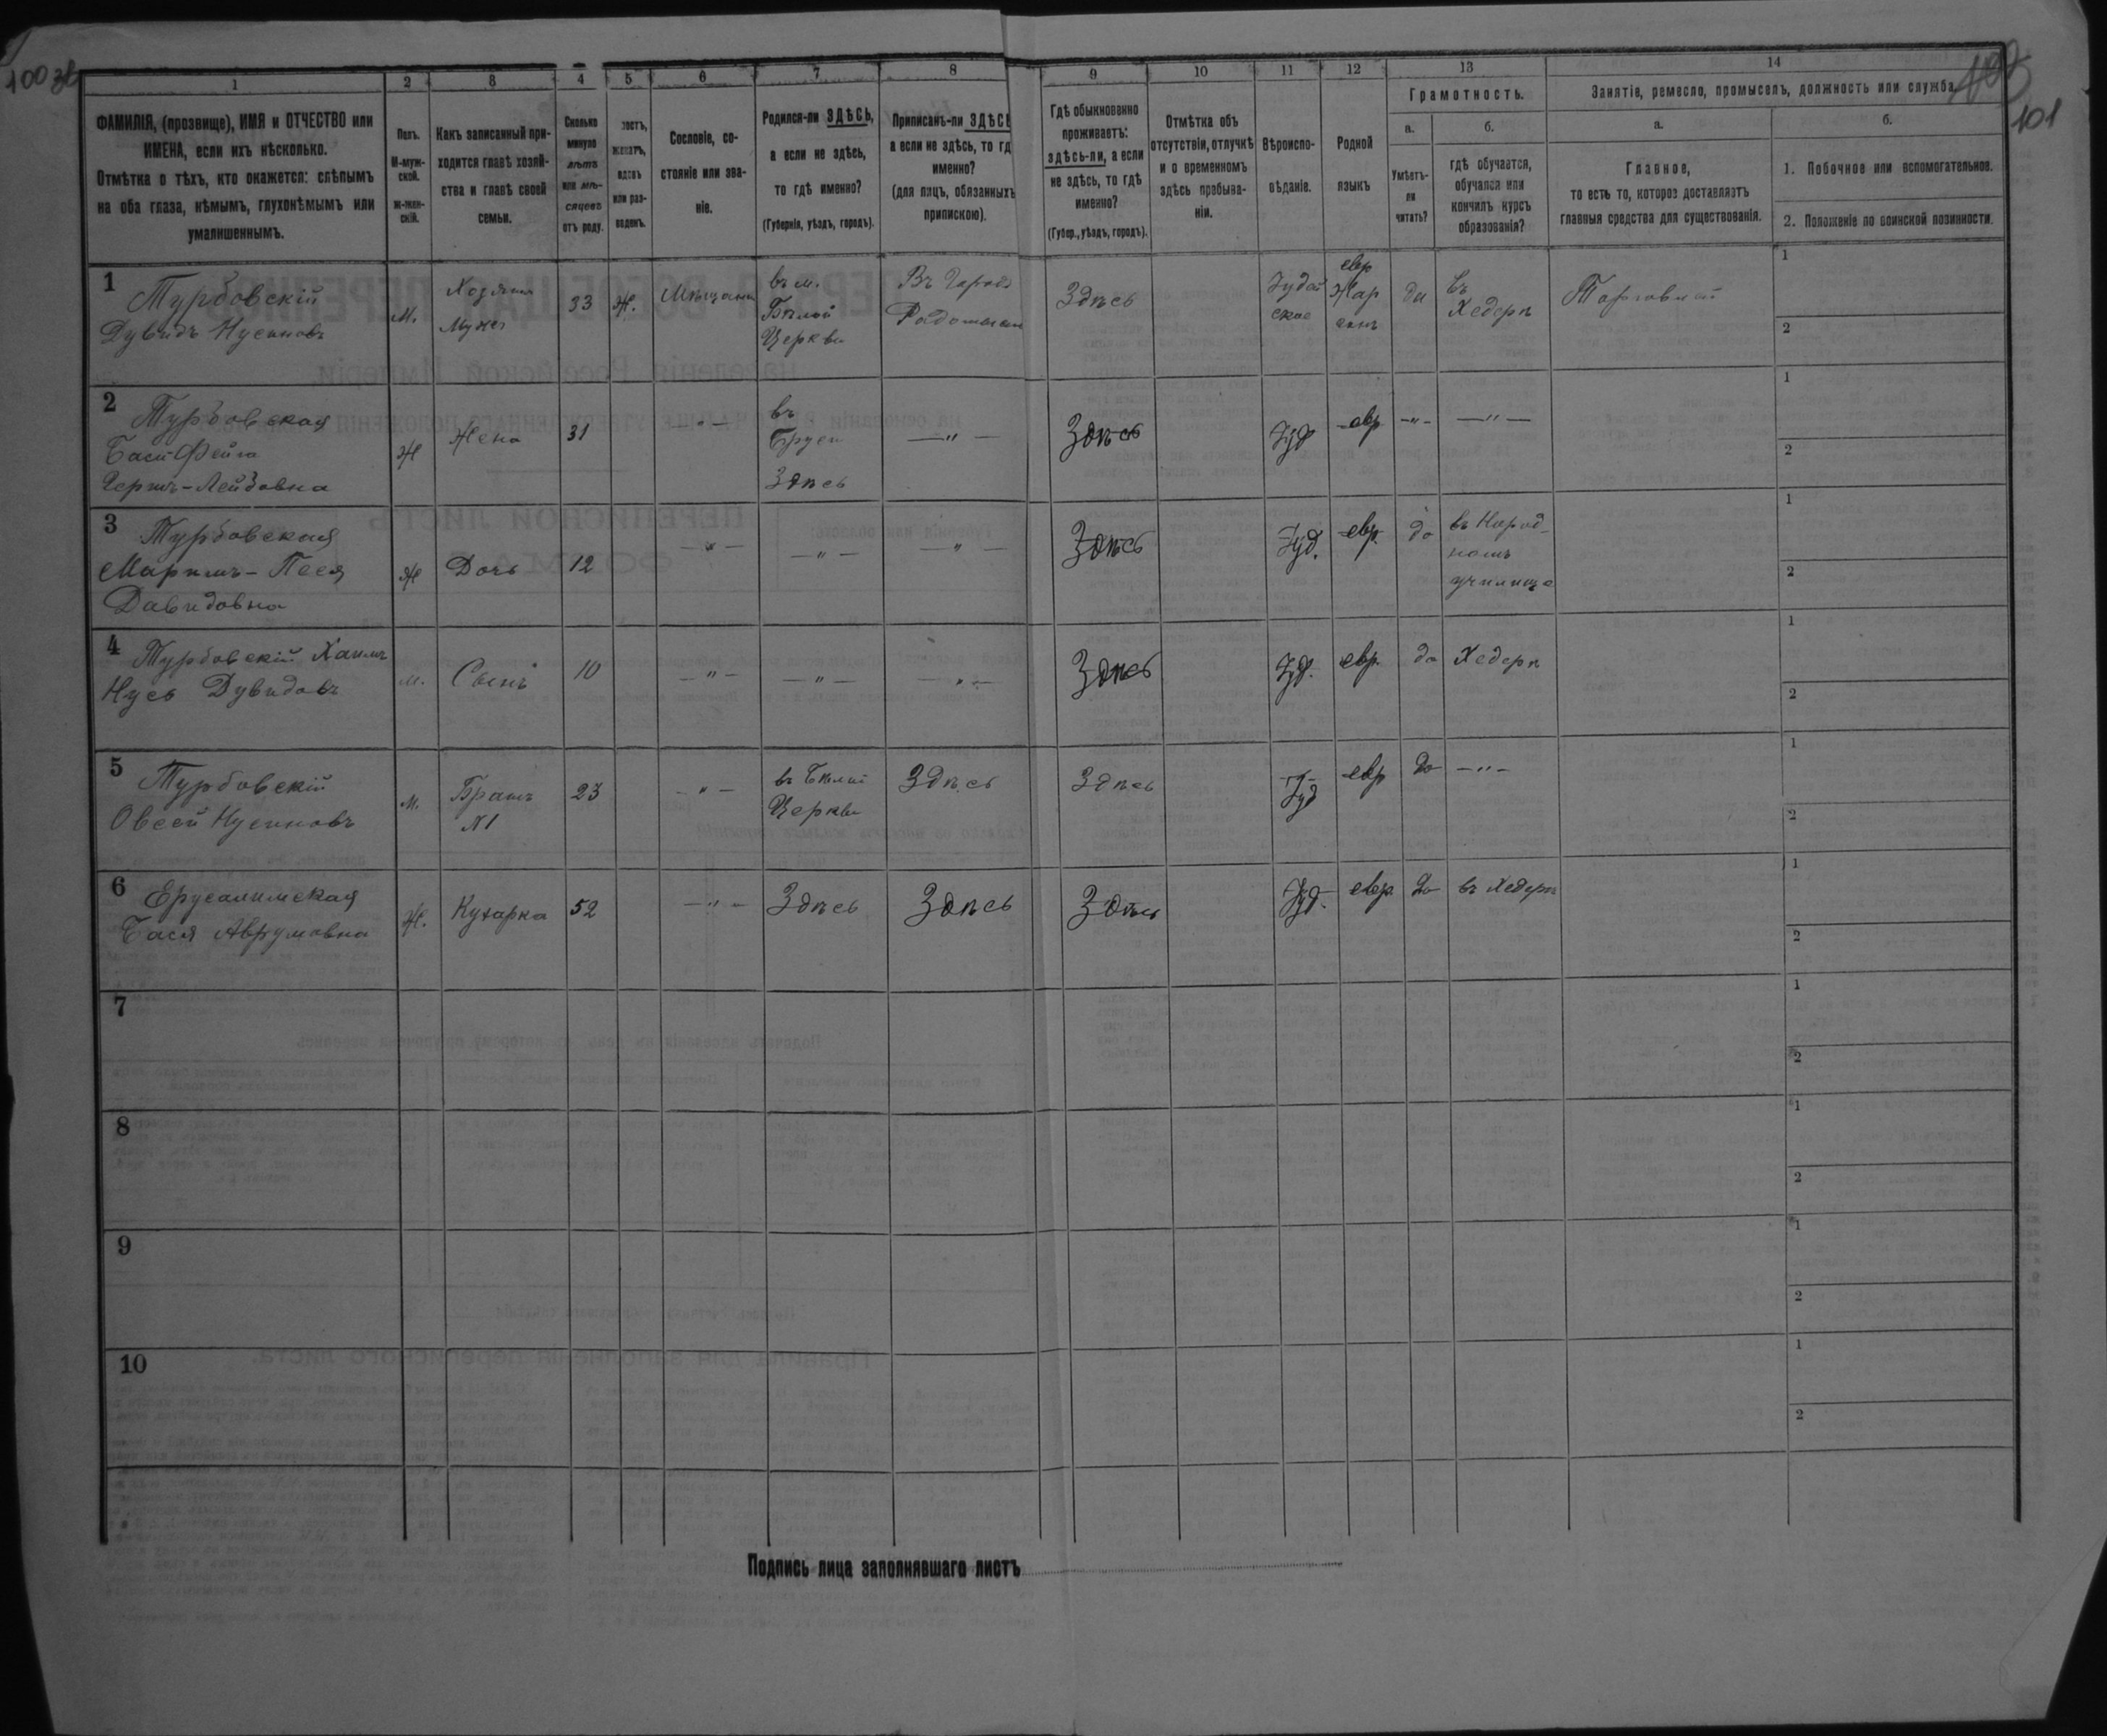 100 об
101
1
2
3
4
5
6
7
8
9
10
11
12
13
14
ФАМИЛІЯ, (прозвище), ИМЯ и ОТЧЕСТВО или
ИМЕНА, если ихъ нѣсколько.
Отмѣтка о тѣхъ, кто окажется: слѣпымъ
на оба глаза, нѣмымъ, глухонѣмымъ или
умалишеннымъ.
Полъ.
М-муж-
ской.
ж-жен-
скій.
Какъ записанный при-
ходится главѣ хозяй-
ства и главѣ своей
семьи.
Сколько
минуло
лѣтъ
или мѣ-
сяцевъ
отъ роду.
лостъ,
женатъ,
вдовъ
или раз-
веденъ.
Сословіе, со-
стояніе или зва-
ніе.
Родился-ли ЗДѢСЬ,
а если не здѣсь,
то гдѣ именно?
(Губернія, уѣздъ, городъ).
Приписанъ-ли ЗДѢСЬ
а если не здѣсь, то гд
именно?
(для лицъ, обязанныхъ
припискою).
Гдѣ обыкновенно
проживаетъ:
здѣсь-ли, а если
не здѣсь, то гдѣ
именно?
(Губер., уѣздъ, городъ).
Отмѣтка объ
отсутствіи, отлучкѣ
и о временномъ
здѣсь пребыва-
ніи.
Вѣроиспо-
вѣданіе.
Родной
языкъ
Грамотность.
а.
Умѣетъ-
ли
читать?
б.
гдѣ обучается,
обучался или
кончилъ курсъ
образованія?
Занятіе, ремесло, промыселъ, должность или служба.
а.
Главное,
то есть то, которое доставляетъ
главныя средства для существованія.
б.
1. Побочное или вспомогательное.
2. Положеніе по воинской повинности.
1 Турбовскій
Дувидъ Нусиновъ
М.
Хозяинъ
Мужъ
33
Ж.
Мѣщанин
въ м.
Бѣлой
Церкви
Въ Городѣ
Радомысль
Здѣсь
Іудей
ское
евр
жар
гонъ
да
въ
Хедерѣ
Торговлей
1
2
2 Турбовская
Бася Фейга
Гершъ-Лейбовна
Ж
Жена
31
— " —
въ
Здѣсь
— " —
Здѣсь
Іуд
евр
— " —
— " —
1
2
3 Турбовская
Марьямъ-Песя
Давидовна
Ж
Дочь
12
— " —
— " —
— " —
Здѣсь
Іуд.
евр.
да
въ Народ-
номъ
училище
1
2
4 Турбовскій Хаимъ
Нусь Дувидовъ
м.
Сынъ
10
— " —
— " —
— " —
Здѣсь
Іуд.
евр.
да
Хедерѣ
1
2
5 Турбовскій
Овсей Нусиновъ
м.
Братъ
N1
23
— " —
въ Бѣлой
Церкви
Здѣсь
Здѣсь
Іуд
евр
да
— " —
1
2
6 Ерусалимская
Бася Аврумовна
Ж.
Кухарка
52
— " —
Здѣсь
Здѣсь
Здѣсь
Іуд.
евр.
да
въ Хедерѣ
1
2
7
1
2
8
1
2
9
1
2
10
1
2
Подпись лица заполнявшаго листъ